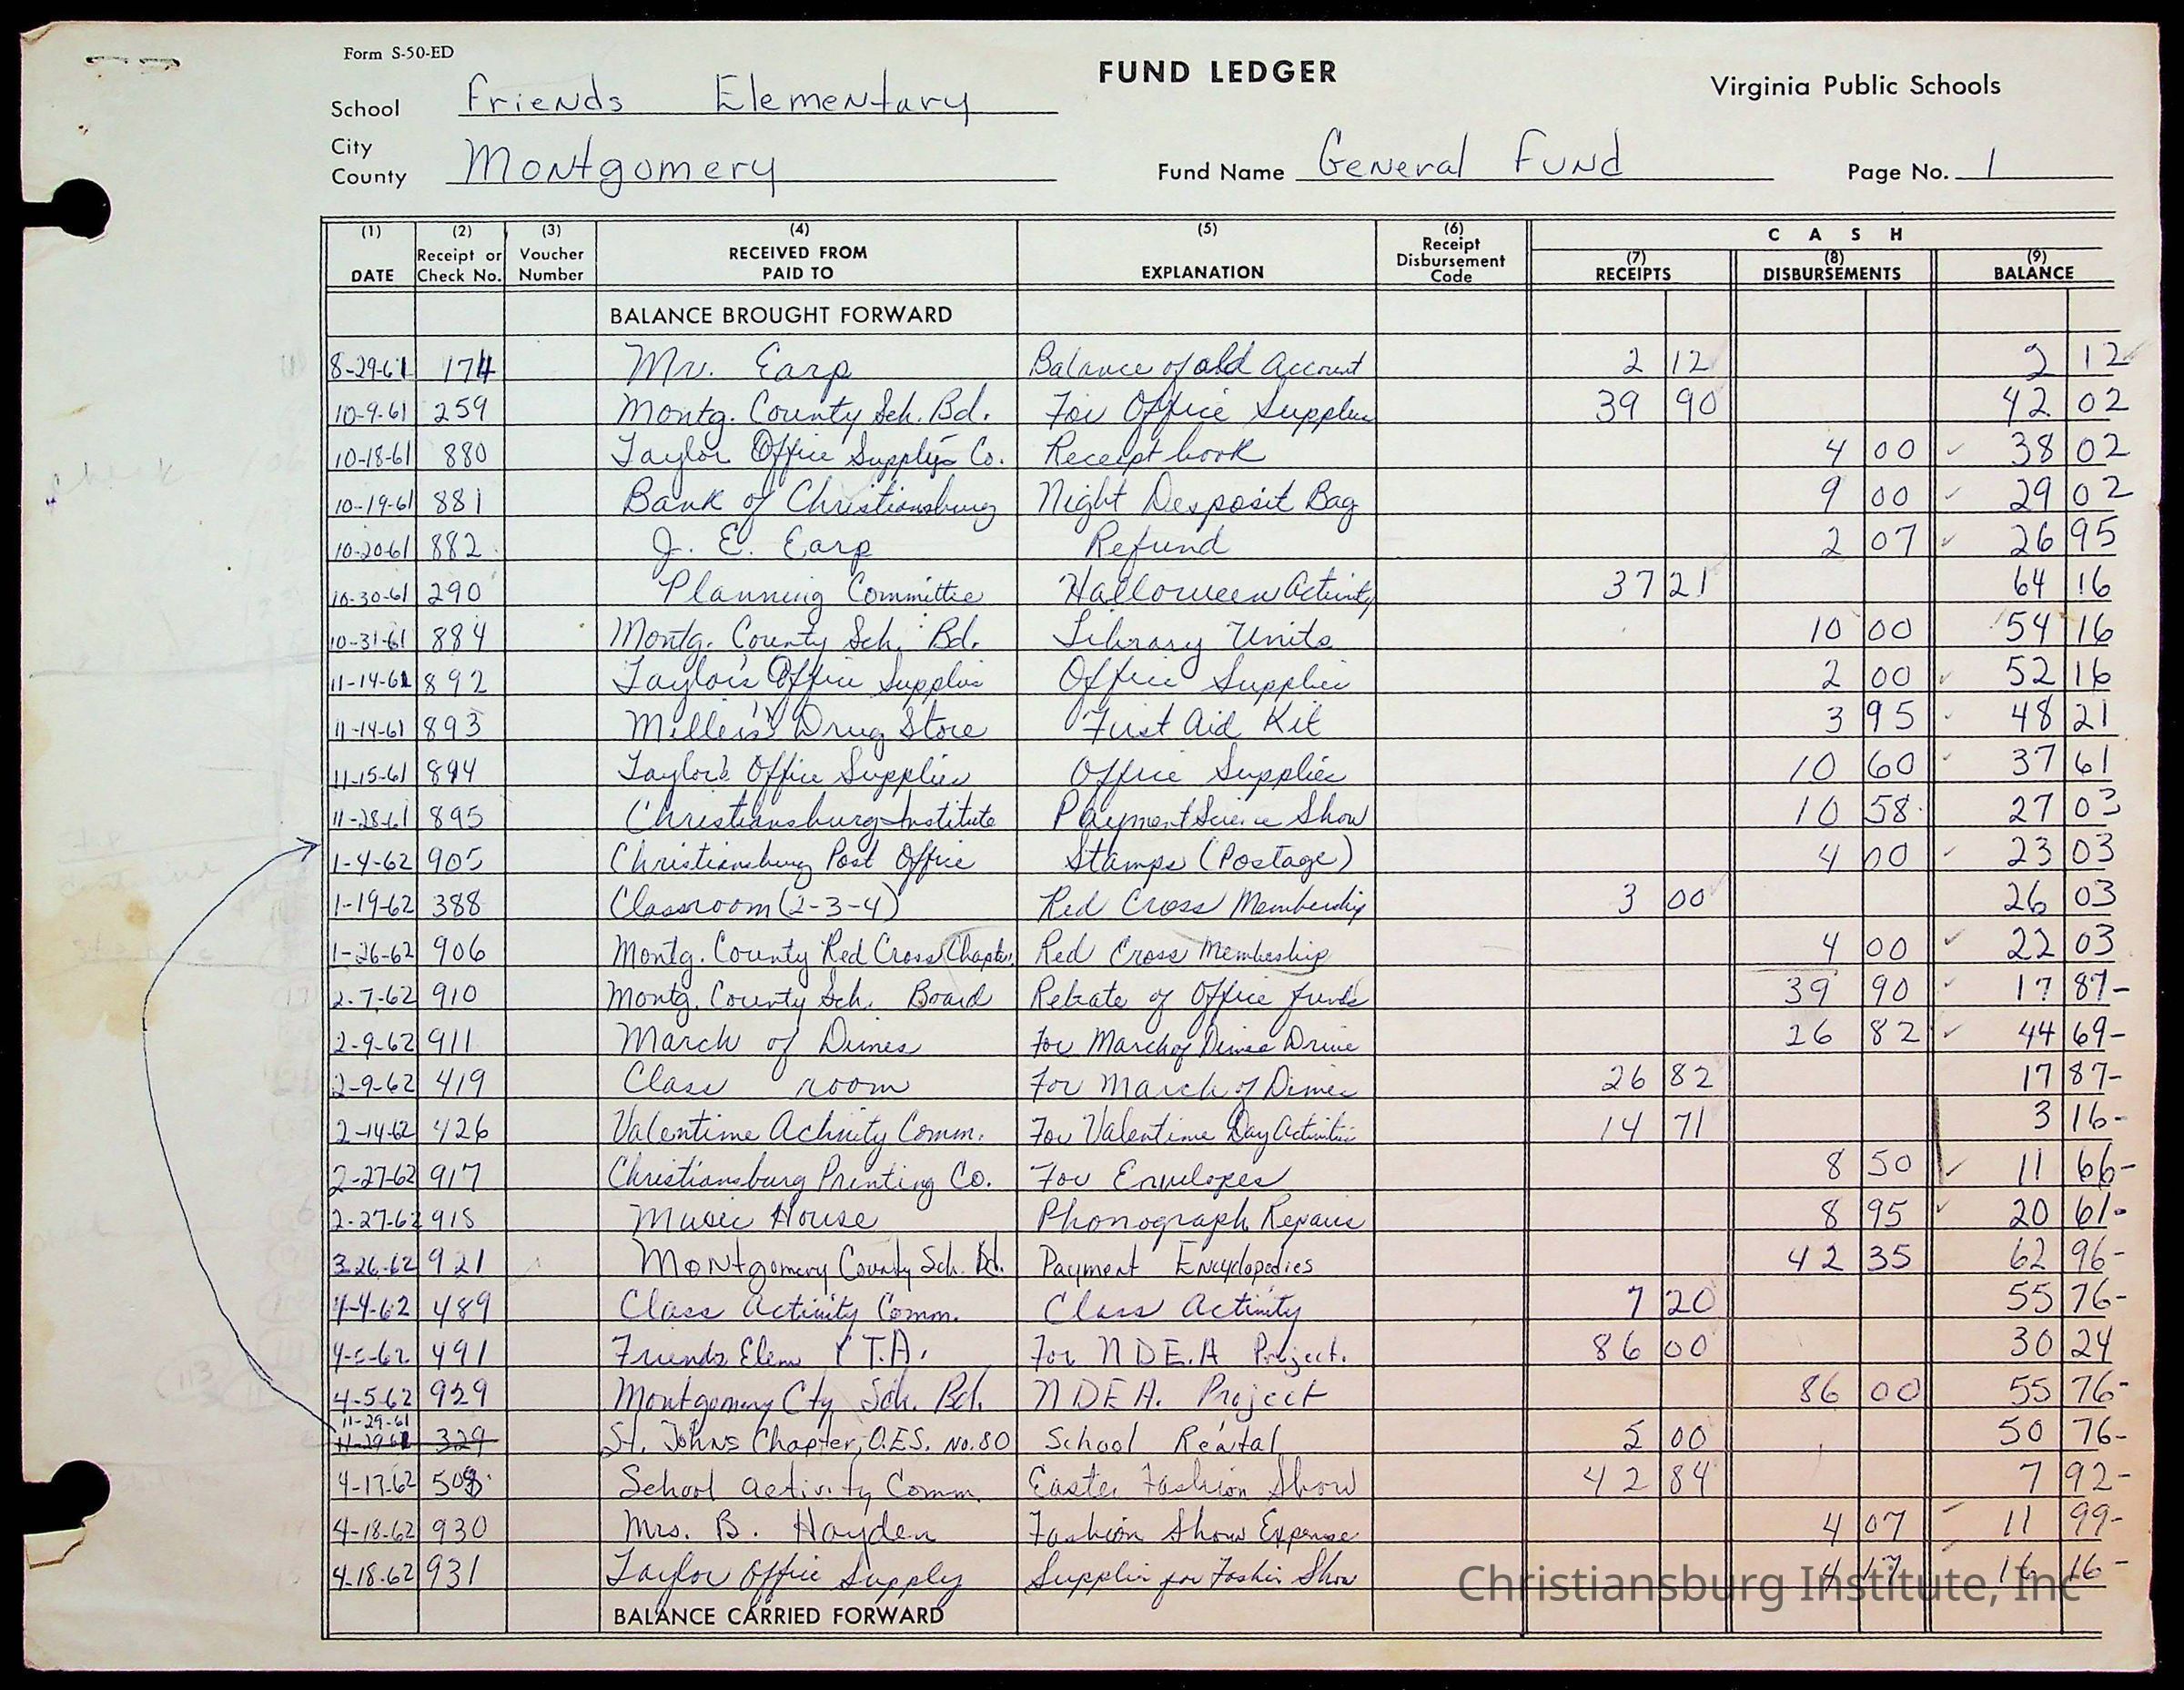 Form S-50-ED
FUND LEDGER
Virginia Public Schools
School Friends Elementary
City
County Montgomery
Fund Name General Fund
Page No. 1
(1) DATE (2) Receipt or Check No. (3) Voucher Number (4) RECEIVED FROM PAID TO (5) EXPLANATION (6) Receipt Disbursement Code CASH (7) RECEIPTS (8) DISBURSEMENTS (9) BALANCE
BALANCE BROUGHT FORWARD
8-29-61 174 Mr. Earp Balance of old Account 2 12 2 12
10-9-61 259 Montg. County Sch. Bd. For Office Supplies 39 90 42 02
10-18-61 880 Taylor Office Supply's Co. Receipt book 4 00 38 02
10-19-61 881 Bank of Christiansburg Night Desposit Bag 9 00 29 02
10-20-61 882 J. E. Earp Refund 2 07 26 95
10-30-61 290 Planning Committee Halloween Activity 37 21 64 16
10-31-61 884 Montg. County Sch. Bd. Library Units 10 00 54 16
11-14-61 892 Taylor's Office Supplies Office Supplies 2 00 52 16
11-14-61 893 Miller's Drug Store First Aid Kit 3 95 48 21
11-15-61 894 Taylor's Office Supplies Office Supplies 10 60 37 61
11-28-61 895 Christiansburg Institute Payment Science Show 10 58 27 03
1-4-62 905 Christiansburg Post Office Stamps (Postage) 4 00 23 03
1-19-62 388 Classroom (2-3-4) Red Cross Membership 3 00 26 03
1-26-62 906 Montg. County Red Cross Chapter Red Cross Membership 4 00 22 03
2-7-62 910 Montg. County Sch. Board Rebate of Office funds 39 90 17 87-
2-9-62 911 March of Dimes For March of Dimes Drive 26 82 44 69-
2-9-62 419 Class room For March of Dimes 26 82 17 87-
2-14-62 426 Valentime Activity Comm. For Valentime Day Activities 14 71 3 16-
2-27-62 917 Christiansburg Printing Co. For Envelopes 8 50 11 66-
2-27-62 918 Music House Phonograph Repairs 8 95 20 61-
3-26-62 921 Montgomery County Sch. Bd. Payment Encyclopedies 42 35 62 96-
4-4-62 489 Class Activity Comm. Class Activity 7 20 55 76-
4-5-62 491 Friends Elem P.T.A. For NDE.A Project. 86 00 30 24
4-5-62 929 Montgomery Cty Sch. Bd. NDEA. Project 86 00 55 76-
11-29-61
11-29-61 329 St. Johns Chapter, O.E.S. No. 80 School Rental 5 00 50 76-
4-17-62 508 School Activity Comm. Easter Fashion Show 42 84 7 92-
4-18-62 930 Mrs. B. Hayden Fashion Show Expense 4 07 11 99-
4-18-62 931 Taylor Office Supply Supplies for Fashin Show 4 17 16 16-
BALANCE CARRIED FORWARD
Christiansburg Institute, Inc